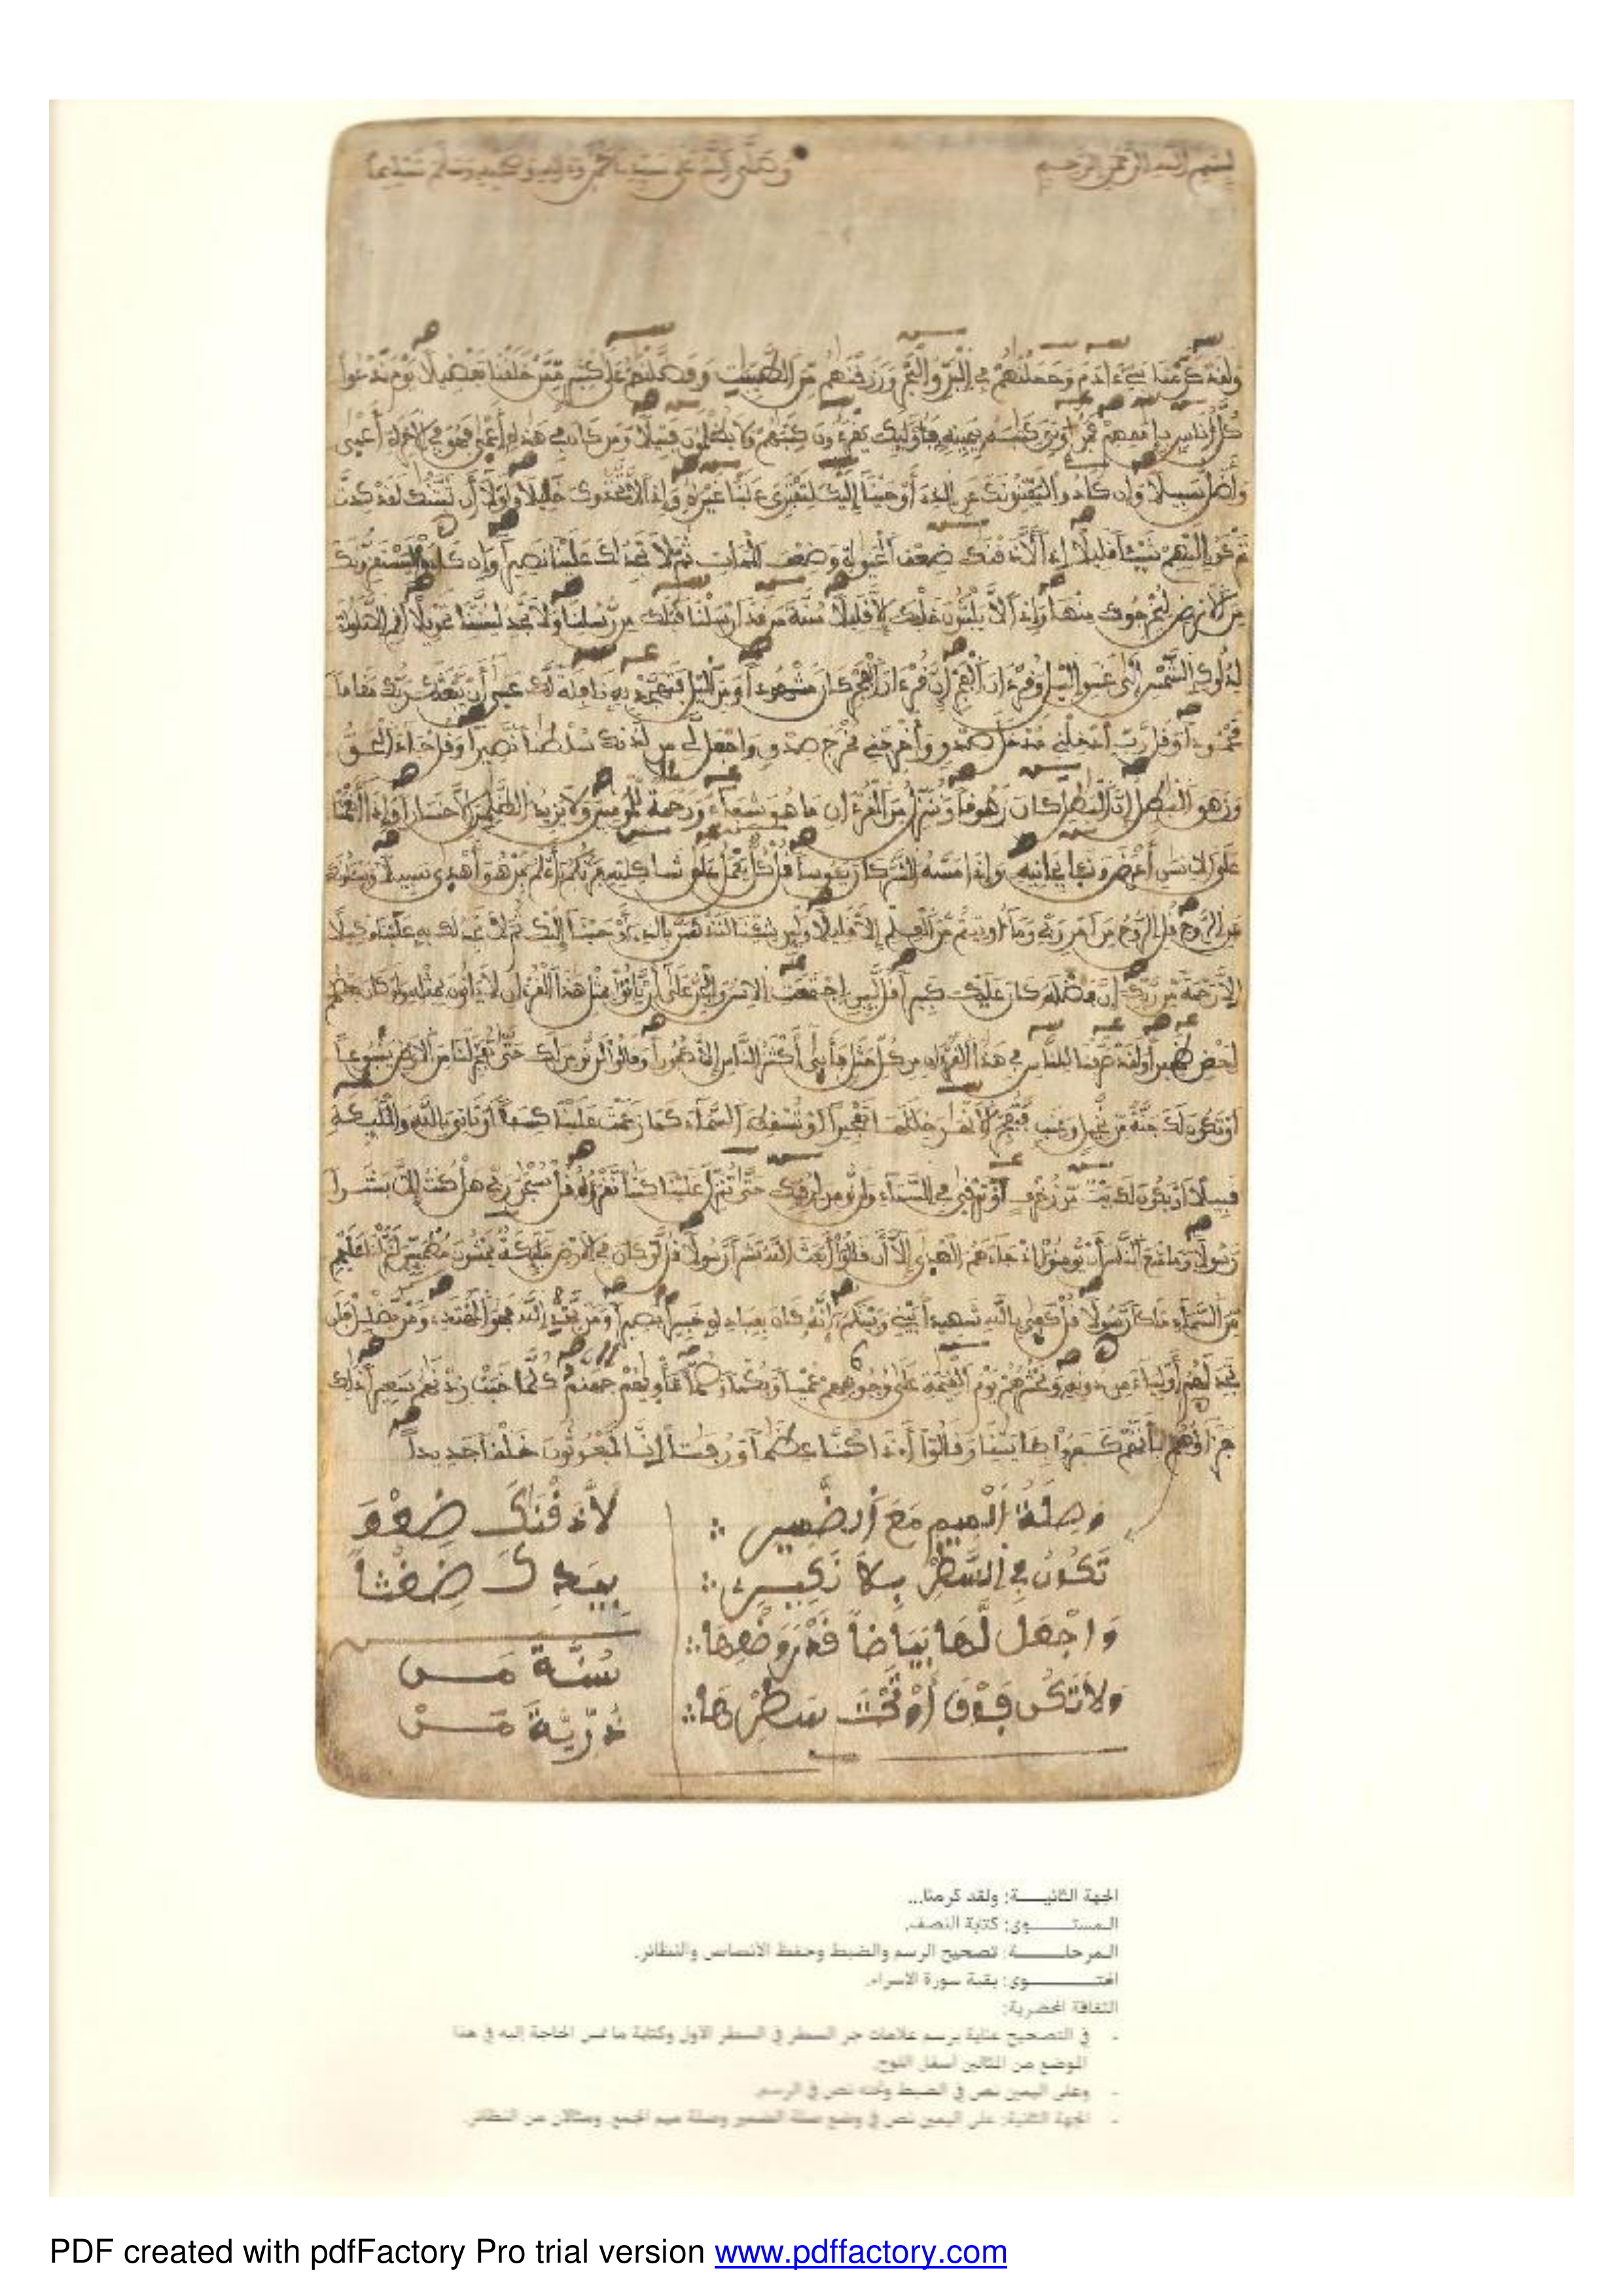 بسم الله الرحمن الرحيم وصلى الله على سيدنا محمد وءاله وصحبه وسلم تسليما
ولقد كرمنا بنے ءادم وحملنهم في البر والبحر ورزقنهم من الطيبت وفضلنهم على كثير ممن خلقنا تفضيلا يوم ندعوا
كل أناس بإممهم فمن أوتي كتبه بيمينه فأوليك يقرءون كتبهم ولا يظلمون فتيلا ومن كان في هذه أعمى فهو في الاخرة أعمى
وأضل سبيلا وإن كادوا ليفتنونك عن الذے أوحينا إليك لتفتري علينا غيره وإذا لاتخذوك خليلا ولولا أن ثبتنك لقد كدت
تركن إليهم شيئا قليلا إذا لأذقنك ضعف الحيوة وضعف الممات ثم لا تجد لك علينا نصيرا وإن كادوا ليستفزونك
من الارض ليخرجوك منها وإذا لا يلبثون خلفك إلا قليلا سنة من قد ارسلنا قبلك من رسلنا ولا تجد لسنتنا تحويلا أقم الصلوة
لدلوك الشمس إلى غسق اليل وقرءان الفجر إن قرءان الفجر كان مشهودا ومن اليل فتهجد به نافلة لك عسى أن يبعثك ربك مقاما
محمودا وقل رب أدخلني مدخل صدق وأخرجني مخرج صدق واجعل لي من لدنك سلطنا نصيرا وقل جاء الحق
وزهق البطل إن البطل كان زهوقا وننزل من القرءان ما هو شفاء ورحمة للمومنين ولا يزيد الظلمين إلا خسارا وإذا أنعمنا
على الانسن أعرض ونئا بجانبه وإذا مسه الشر كان يئوسا قل كل يعمل على شاكلته فربكم أعلم بمن هو أهدى سبيلا ويسئلونك
عن الروح قل الروح من امر ربي وما أوتيتم من العلم إلا قليلا ولين شينا لنذهبن بالذے أوحينا إليك ثم لا تجد لك به علينا وكيلا
إلا رحمة من ربك إن فضله كان عليك كبيرا قل لين اجتمعت الانس والجن على أن ياتوا بمثل هذا القرءان لا ياتون بمثله ولو كان بعضهم
لبعض ظهيرا ولقد صرفنا للناس في هذا القرءان من كل مثل فأبى أكثر الناس إلا كفورا وقالوا لن نومن لك حتى تفجر لنا من الارض ينبوعا
أو تكون لك جنة من نخيل وعنب فتفجر الانهر خللها تفجيرا او تسقط السماء كما زعمت علينا كسفا أو تاتي بالله والمليكة
قبيلا او يكون لك بيت من زخرف او ترقى في السماء ولن نومن لرقيك حتى تنزل علينا كتبا نقرؤه قل سبحن ربي هل كنت إلا بشرا
رسولا وما منع الناس أن يومنوا إذ جاءهم الهدى إلا أن قالوا أبعث الله بشرا رسولا قل لو كان في الارض مليكة يمشون مطمينين لنزلنا عليهم
من السماء ملكا رسولا قل كفى بالله شهيدا بيني وبينكم إنه كان بعباده خبيرا بصيرا ومن يهد الله فهو المهتدے ومن يضلل فلن
تجد لهم أولياء من دونه ونحشرهم يوم القيمة على وجوههم عميا وبكما وصما مأويهم جهنم كلما خبت زدنهم سعيرا ذلك
جزاؤهم بأنهم كفروا بـايتنا وقالوا أ.ذا كنا عظما ورفتا إنا لمبعوثون خلقا جديدا
وصلة الميم مع الضمير ∴
تكون في السطر بلا نكير ∴
واجعل لها بياضا قدر وضعها ∴
ولا تكن فوق أو تحت سطرها ∴
لأذقنك ضعف
بيدك ضغثا
سنة من
ذرية من
الجهة الثانيـــة: ولقد كرمنا...
المستـــوى: كتابة النصف.
المرحلـــة: تصحيح الرسم والضبط وحفظ الأنصاص والنظائر.
المحتـــوى: بقية سورة الإسراء.
الثقافة المحضرية:
- في التصحيح عناية برسم علامات جر السطر في السطر الأول وكتابة ما تمس الحاجة إليه في هذا
الموضع من المثالين أسفل اللوح.
- وعلى اليمين نص في الضبط وتحته نص في الرسم.
- الجهة الثانية: على اليمين نص في وضع صلة الضمير وصلة ميم الجمع. ومثالان من النظائر.
PDF created with pdfFactory Pro trial version www.pdffactory.com